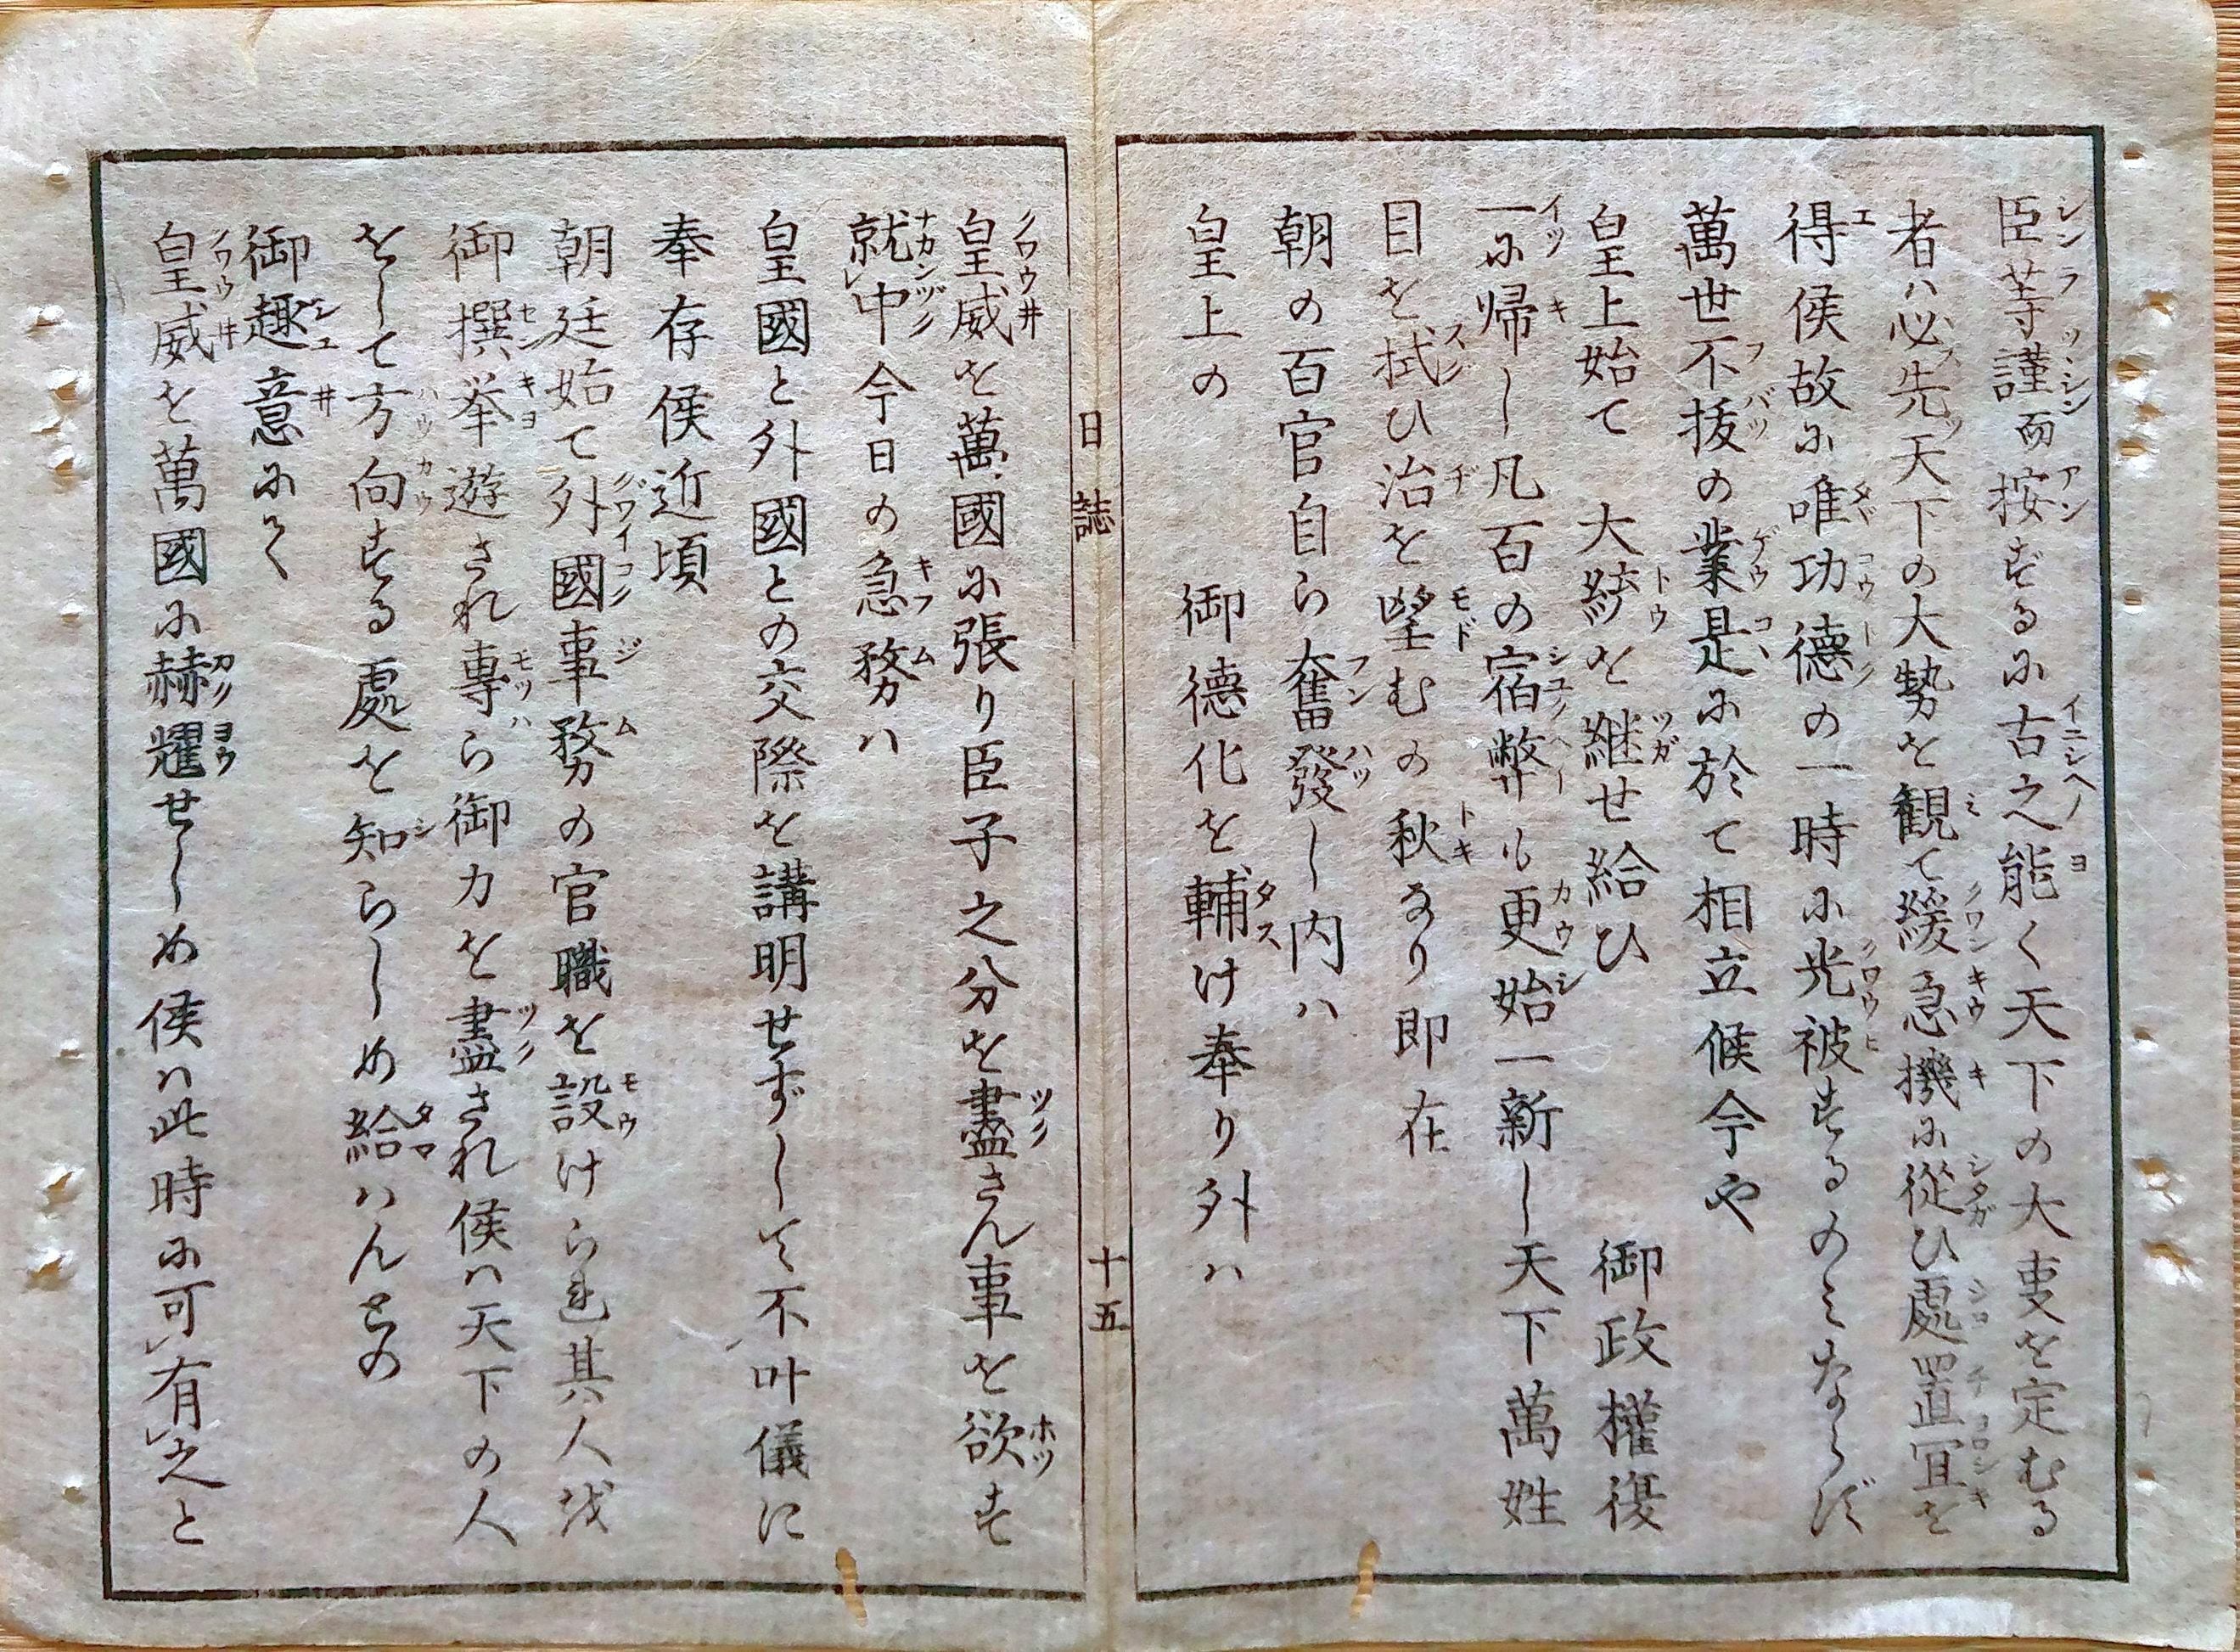 臣等謹而按ずるに古之能く天下の大事を定むる
者ハ必先天下の大勢を観て緩急機に従ひ處置冝を
得候故に唯功徳の一時に光被するのみならず
萬世不抜の業是に於て相立候今や
皇上始て　大統を継せ給ひ　　御政權復
一に帰し凡百の宿弊も更始一新し天下萬姓
目を拭ひ治を望むの秋なり即在
朝の百官自ら奮發し内ハ
皇上の　　御徳化を輔け奉り外ハ
日誌　十五
皇威を萬國に張り臣子之分を盡さん事を欲す
就中今日の急務ハ
皇國と外國との交際を講明せずして不叶儀に
奉存候近頃
朝廷始て外國事務の官職を設けられ其人を
御撰挙遊され専ら御力を盡され候ハ天下の人
をして方向する處を知らしめ給ハんとの
御趣意にて
皇威を萬國に赫耀せしめ候ハ此時に可有之と